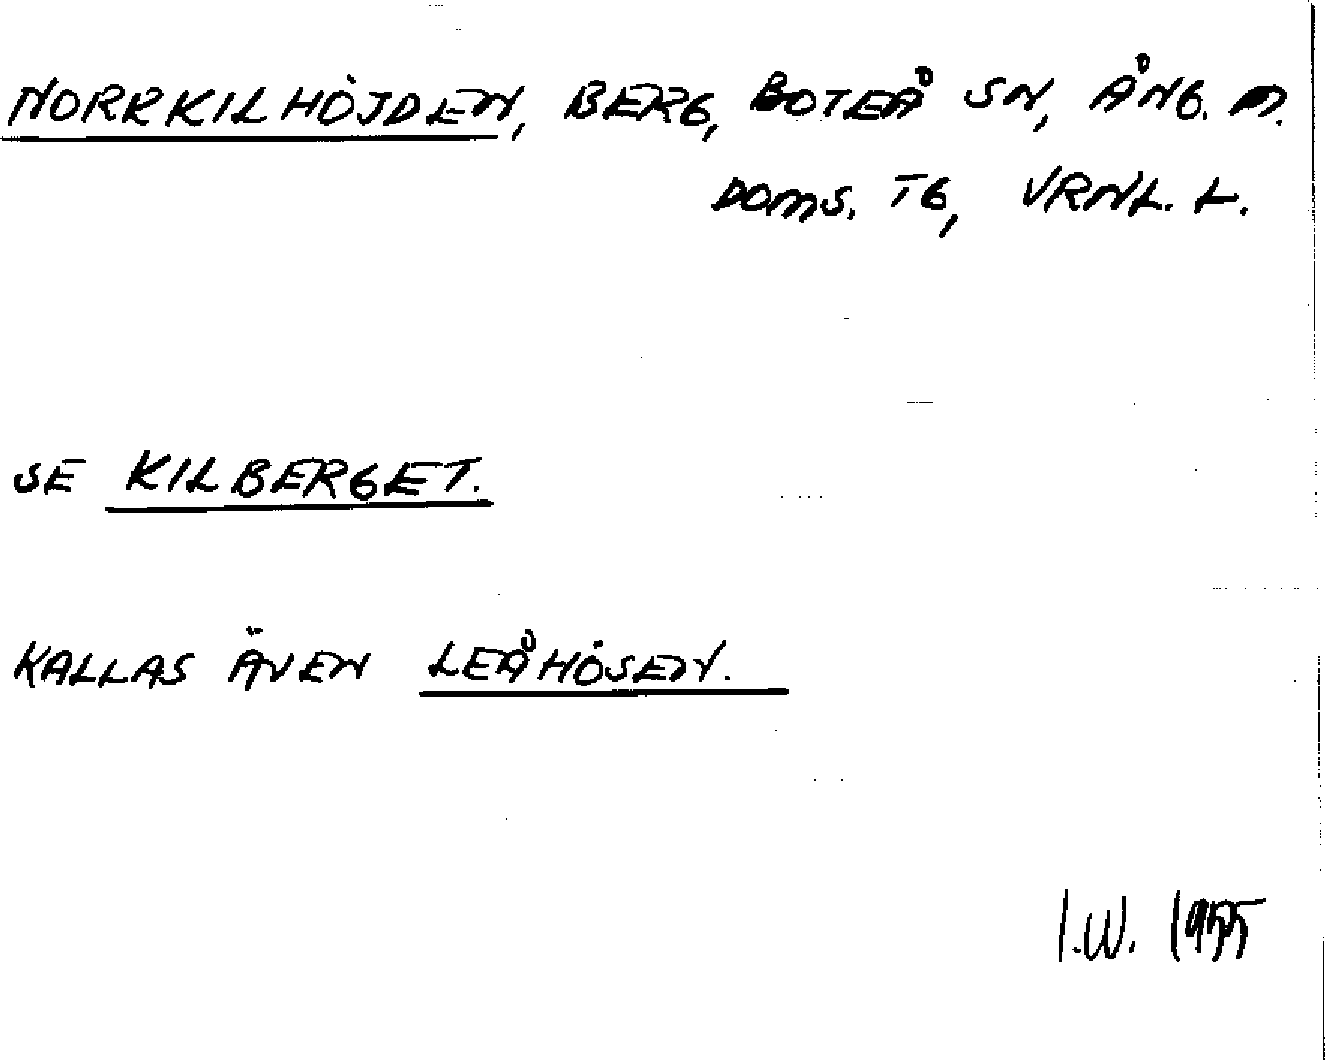 NORRKILHÖJDEN, BERG, BOTEÅ SN, ÅNG. M.
DOMS. TG, VRNL. L.
SE KILBERGET.
KALLAS ÄVEN LEÅHÖSEN.
I.W. 1955